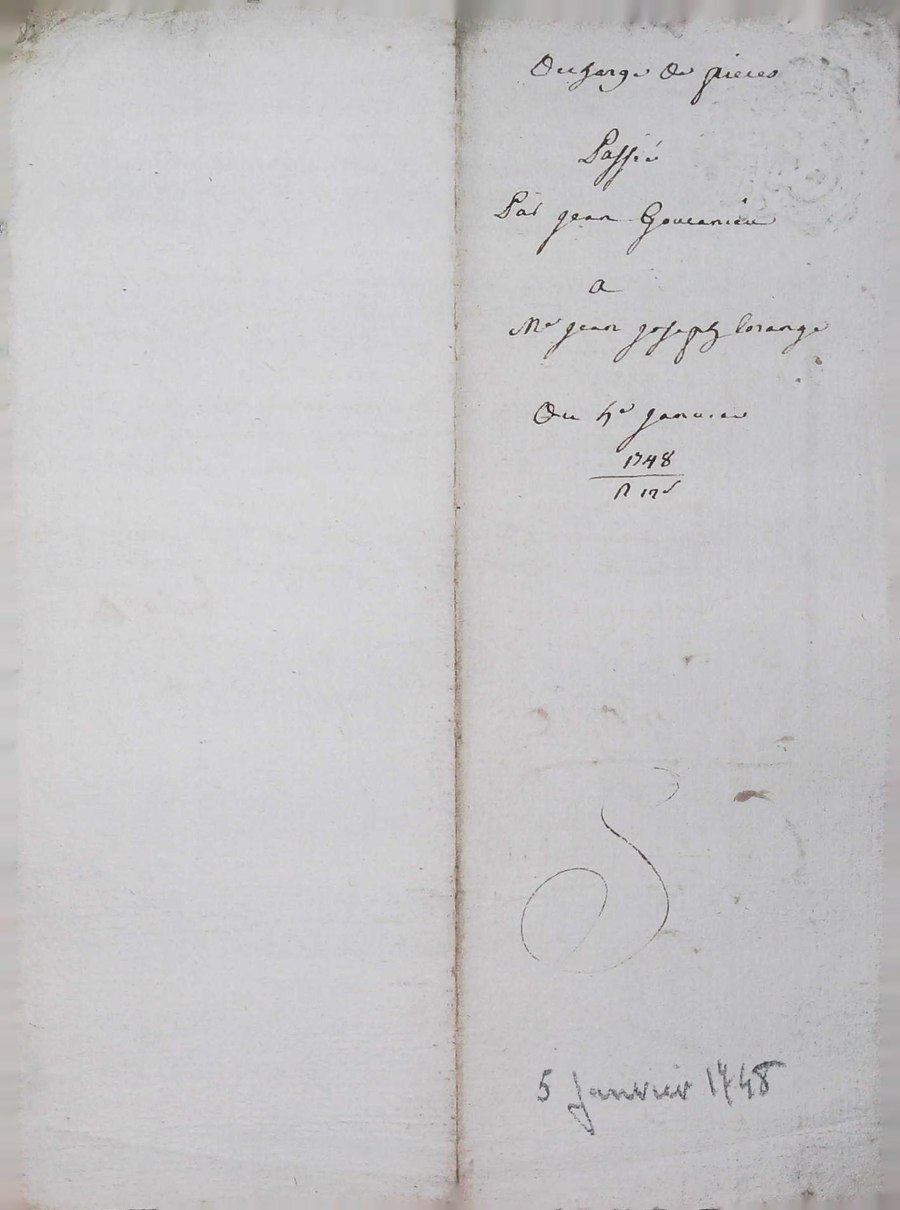 Decharge de pieces
Passée
Par jean
a
Me jean joseph lorange
Du 5e janvier
1748
5 Janvier 1748